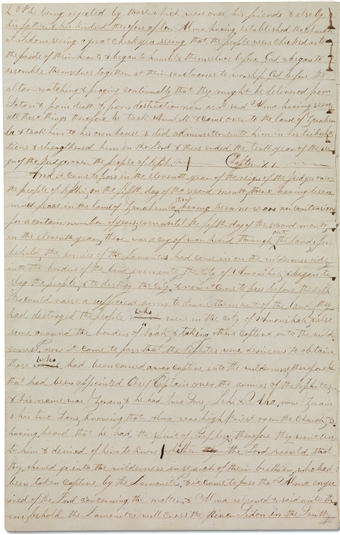 & being rejected by those which were once his friends & also by
his father & his kindred therefore after Alma having established the Church
at Sidom seeing a great check yea seeing that the people were checked as to
the pride of their hearts & began to humble themselves before God & began to
assemble themselves together at their sanctuaries to worship God before the
altar watching & praying continually that they might be delivered from
Satan & from death & from destruction now as I said Alma having seen
all these things therefore he took Amulek & came over to the land of Zarahem
la & took him to his own house & did administer unto him in his tribula
tions & strengthened him in the Lord & thus ended the tenth year of the rei
gn of the Judges over the people of Nephi Chapter
And it came to pass in the eleventh year of the reign of the Judges over
the people of Nephi on the fifth day of the second month there having been
much peace in the land of Zarahemla there having been no wars nor contentions
for a certain number of years even until the fifth day of the second month
in the eleventh year there was a cry of war heard through out the land for
behold the armies of the Lamanites had come in on the wilderness side
into the borders of the land even into the City of Ammonihah & began to
slay the people & to destroy the City & now it came to pass before the neph
ites could raise a sufficient army to drive them out of the land they
had destroyed the people who were in the city of Ammonihah & also
some around the borders of Noah & taking others captive into the wild
erness now it came to pass that the Nephites were desirous to obtain
those who had been carried away captive into the wilderness therefore he
that had been appointed Chief Captain over the armies of the Nephites
& his name was Zoram & he had two Sons Lehi & Aha now Zoram
& his two Sons knowing that Alma was high Priest over the Church &
having heard that he had the spirit of Prophecy therefore they went unto
him & desired of him to know whether the Lord would that
they should go into the wilderness in search of their brethren who had
been taken captive by the Lamanites & it came to pass that Alma enqu
ired of the Lord concerning the matter & Alma returned & said unto th
em behold the Lamanites will cross the River Sidon in the South